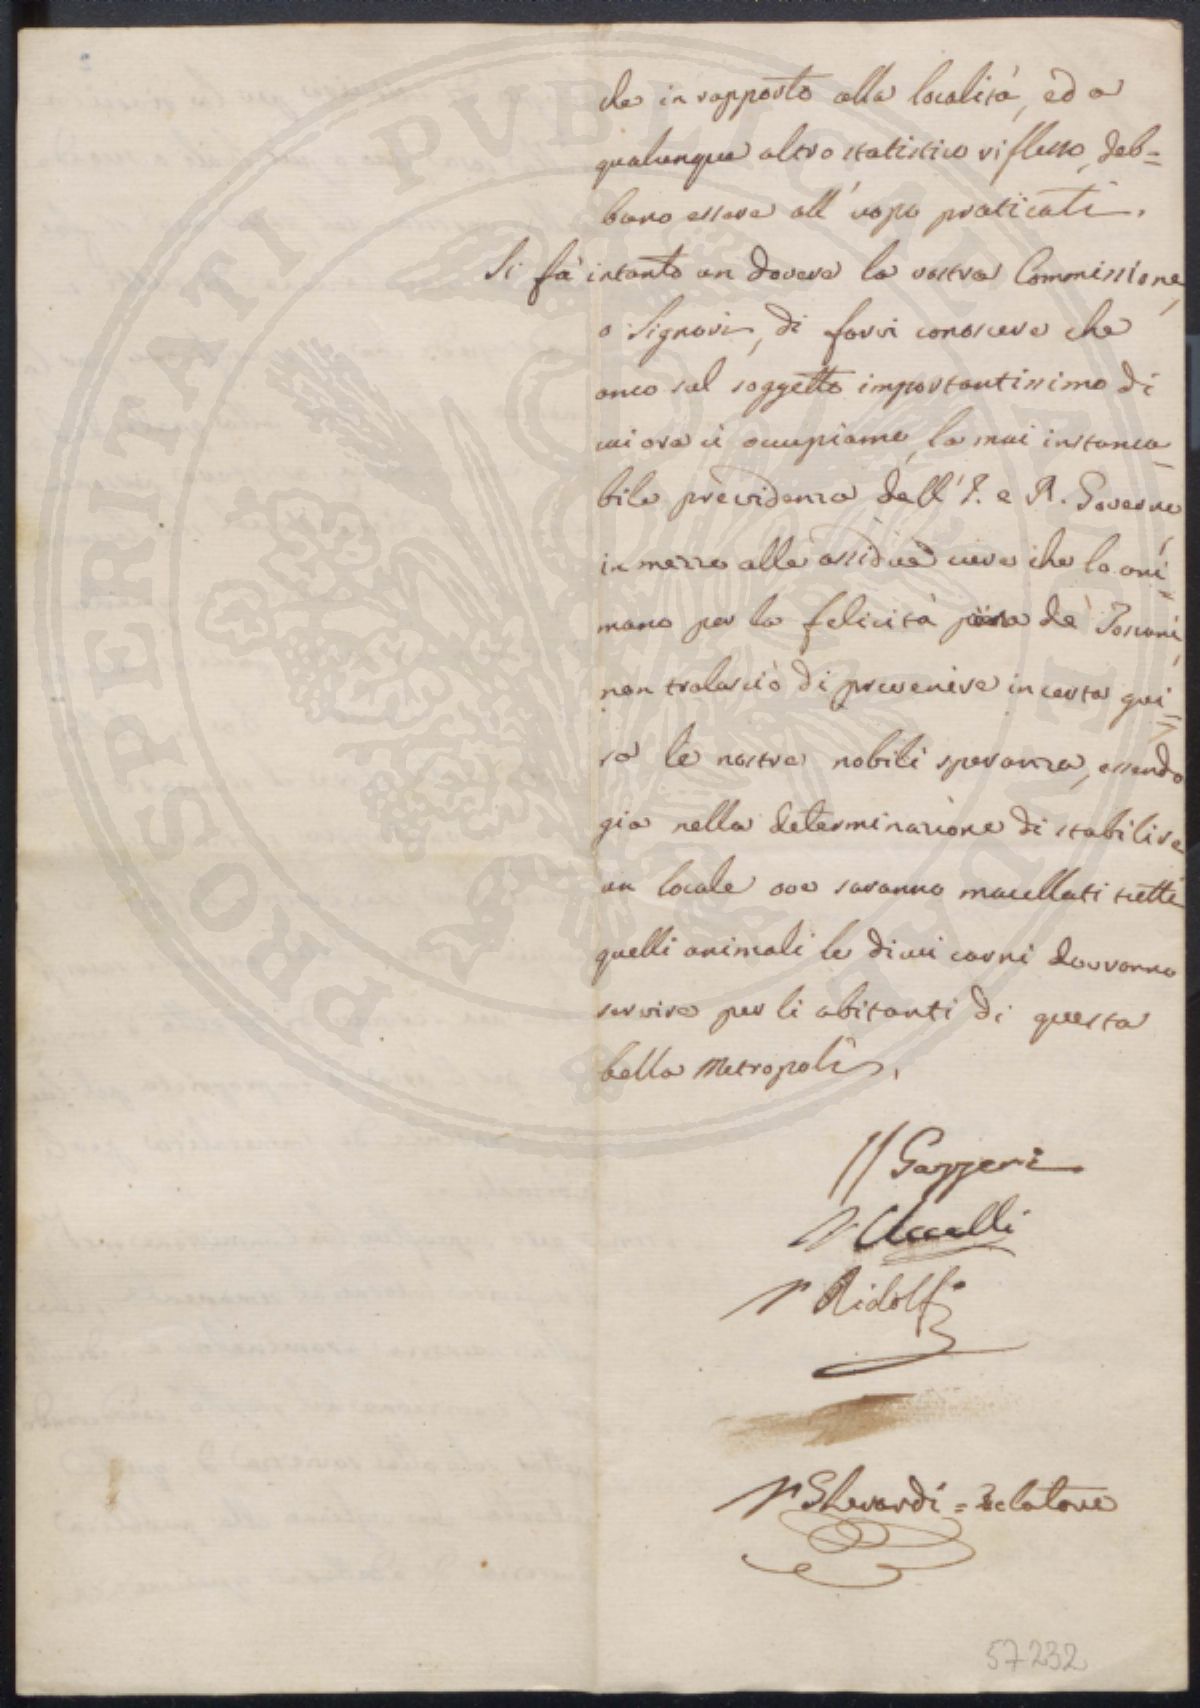 che in rapporto alla località, ed a
qualunque altro statistico riflesso, deb=
bano essere all'uopo praticati.
Si fà intanto un dovere la vostra Commissione,
o Signori, di farvi conoscere che
anco sul soggetto importantissimo di
cui ora ci occupiamo, la mai instanca=
bile previdenza dell'I. e R. Governo,
in mezzo alle assidue cure che lo ani=
mano per la felicità de' Toscani,
non tralasciò di prevenire in certa gui=
sa le nostre nobili speranze, essendo
già nella determinazione di stabilire
un locale ove saranno macellati tutti
quelli animali le di cui carni dovranno
servire per li abitanti di questa
bella Metropoli.
Gazzeri
Uccelli
Ridolfi
Relatore
57232
PROSPERITATI PVBLICAE AVGENDAE